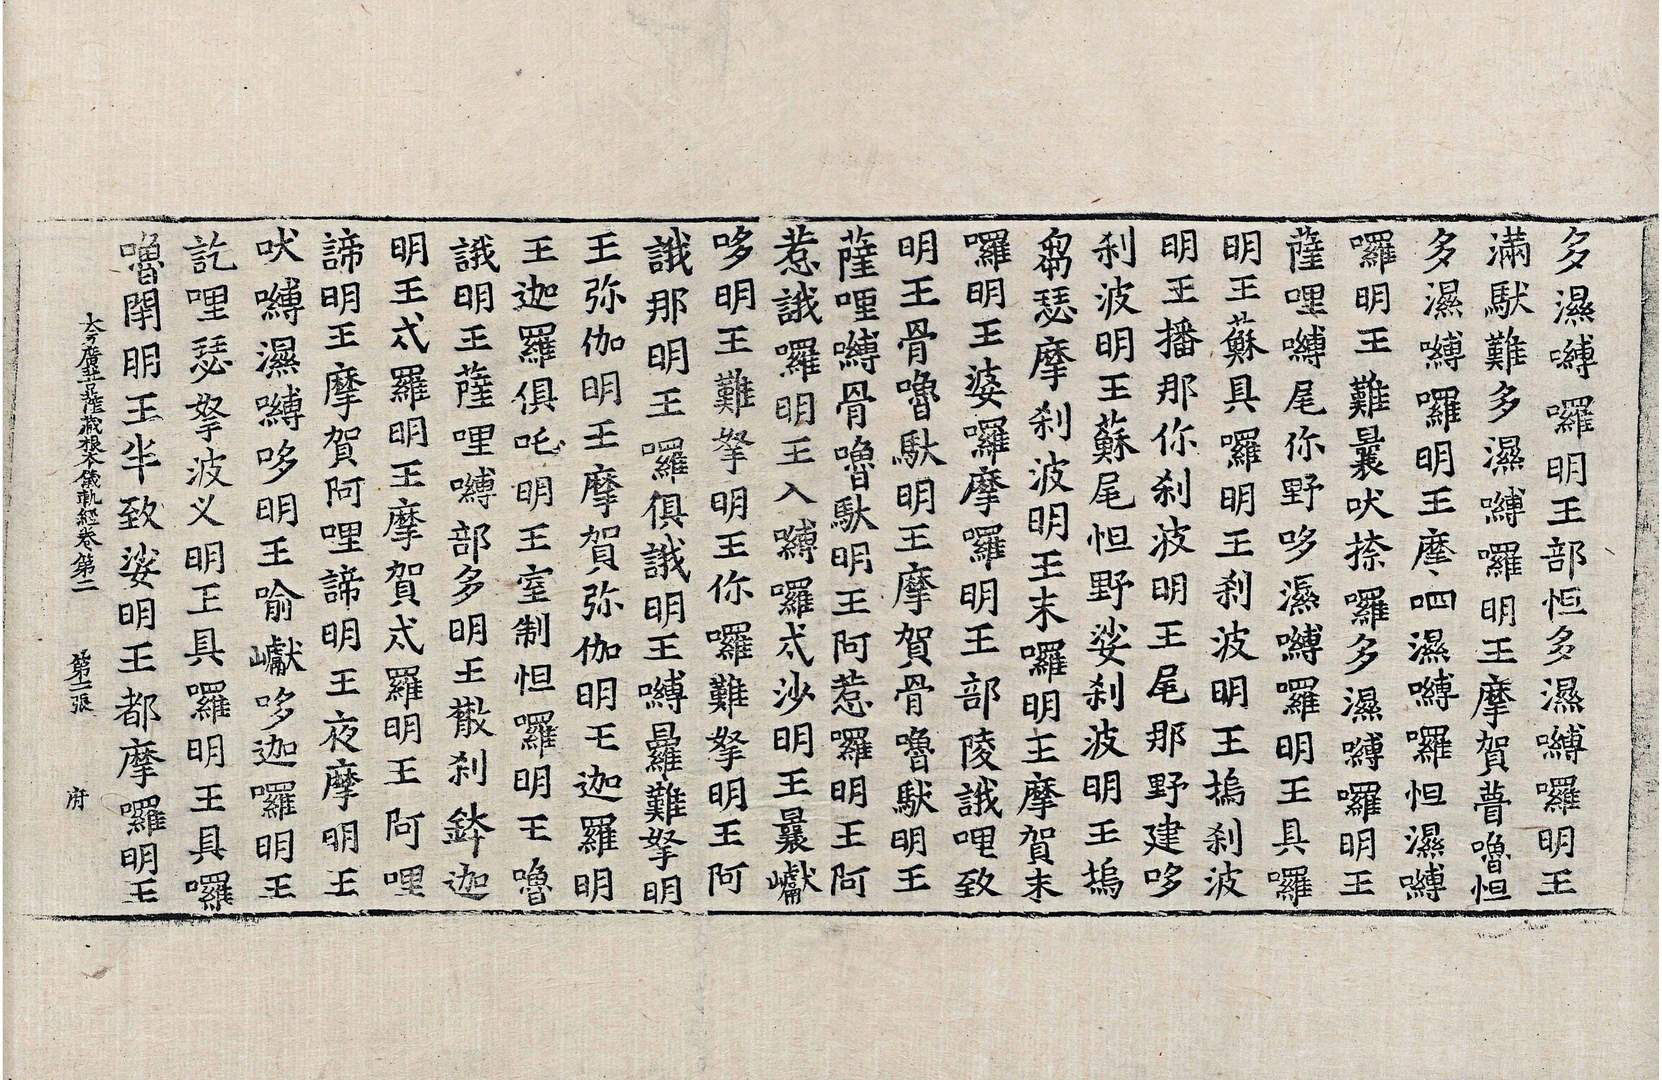 多濕嚩囉明王部怛多濕嚩囉明王
滿馱難多濕嚩囉明王摩賀瞢嚕怛
多濕嚩囉明王摩呬濕嚩囉怛濕嚩
囉明王難曩吠捺囉多濕嚩囉明王
薩哩嚩尾你野哆濕嚩囉明王具囉
明王蘇具囉明王刹波明王塢刹波
明王播那你刹波明王尾那野建哆
刹波明王蘇尾怛野娑刹波明王塢
瑟摩刹波明王末囉明王摩賀末
囉明王婆囉摩囉明王部陵誐哩致
明王骨嚕馱明王摩賀骨嚕馱明王
薩哩嚩骨嚕馱明王阿惹囉明王阿
惹誐囉明王入嚩囉忒沙明王曩巘
哆明王難拏明王你囉難拏明王阿
誐那明王囉俱誐明王嚩曇難拏明
王弥伽明王摩賀弥伽明王迦羅明
王迦羅俱吒明王室制怛囉明王嚕
誐明王薩哩嚩部多明王散刹鉢迦
明王忒羅明王摩賀忒羅明王阿哩
諦明王摩賀阿哩諦明王夜摩明王
吠嚩濕嚩哆明王喻巘哆迦囉明王
訖哩瑟拏波义明王具囉明王具囉
嚕閉明王半致娑明王都摩囉明王
大方廣菩薩藏根本儀軌經卷第二　第二張　府